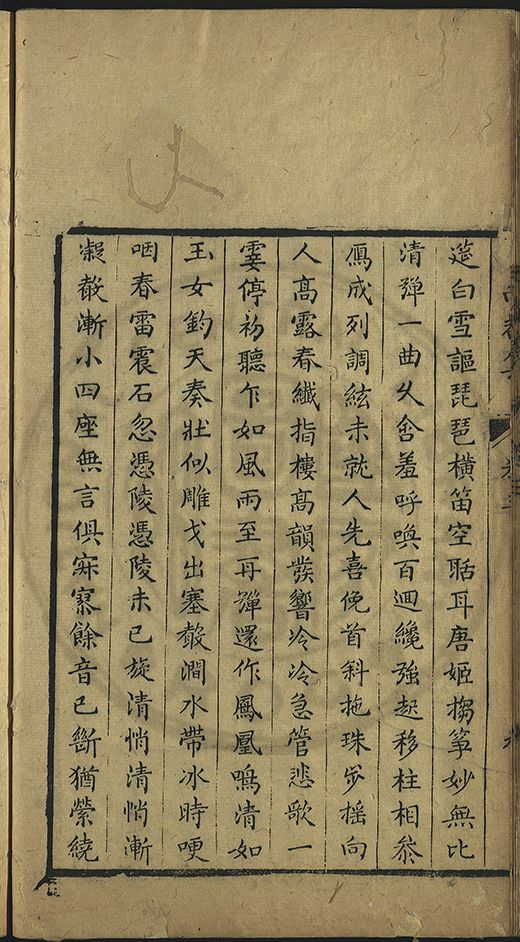 筵白雪謳琵琶橫笛空聒耳唐姬搊箏妙無比
清彈一曲久含羞呼喚百迴纔強起移柱相叅
鴈成列調絃未就人先喜俛首斜拖珠步摇向
人髙露春纖指樓髙韻發響泠泠急管悲歌一
霎停初聽乍如風雨至再彈還作鳳凰鳴清如
玉女鈞天奏壯似雕戈出塞聲澗水帶冰時哽
咽春雷震石忽憑陵憑陵未已旋清悄清悄漸
凝聲漸小四座無言俱寂寥餘音已斷猶縈繞